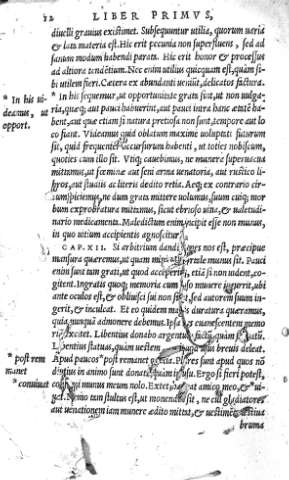 12 LIBER PRIMVS,
diuelli grauius existimet. Subsequuntur utilia, quorum uaria
& lata materia est. Hic erit pecunia non superfluens, sed ad
sanum modum habendi parata. Hic erit honor & processus
ad altiora tendētium. Nec enim utilius quicquam est, quàm si-
bi utilem fieri. Cætera ex abundanti ueniūt, delicatos factura.
* In his ui-
deamus, ut
opport.
* In his sequemur, ut opportunitate grata sint, ut non uulga-
ria, quæq; aut pauci habuerint, aut pauci intra hanc ætatē ha-
bent, aut quæ etiam si natura pretiosa non sunt, tempore aut lo
co fiant. Videamus quid oblatum maxime uoluptati futurum
sit, quid frequenter occursurum habenti, ut toties nobiscum,
quoties cum illo sit. Vtiq; cauebimus, ne munera superuacua
mittamus, ut fœminæ aut seni arma uenatoria, aut rustico li-
bros, aut studiis ac literis dedito retia. Aeq; ex contrario cir-
cumspiciemus, ne dum grata mittere uolumus, suum cuiq; mor
bum exprobratura mittamus, sicut ebrioso uina, & ualetudi-
nario medicamenta. Maledictum enim incipit esse non munus,
in quo uitium accipientis agnoscitur.
CAP. XII. Si arbitrium dandi penes nos est, præcipue
mansura quæremus, ut quam minime mortale munus sit. Pauci
enim sunt tam grati, ut quod acceperint, etiā si non uident, co-
gitent. Ingratis quoq; memoria cum ipso munere incurrit, ubi
ante oculos est, & obliuisci sui non sinit, sed autorem suum in-
gerit, & inculcat. Et eo quidem magis duratura quæramus,
quia nunquā admonere debemus. Ipsa res euanescentem memo
riā excitet. Libentius donabo argentum factū, quàm signatū.
Libentius statuas, quàm uestem, & quod usus breuis deleat.
* post rem
manet
Apud paucos * post rem manet gratia. Plures sunt apud quos nō
diutius in animo sunt donata, quàm in usu. Ergo si fieri potest,
* consumi
consumi munus meum nolo. Extet, hæreat amico meo, & * ui-
uat. Nemo tam stultus est, ut monendus sit, ne cui gladiatores
aut uenationem iam munere ædito mittat, & uestimēta æstiua
bruma